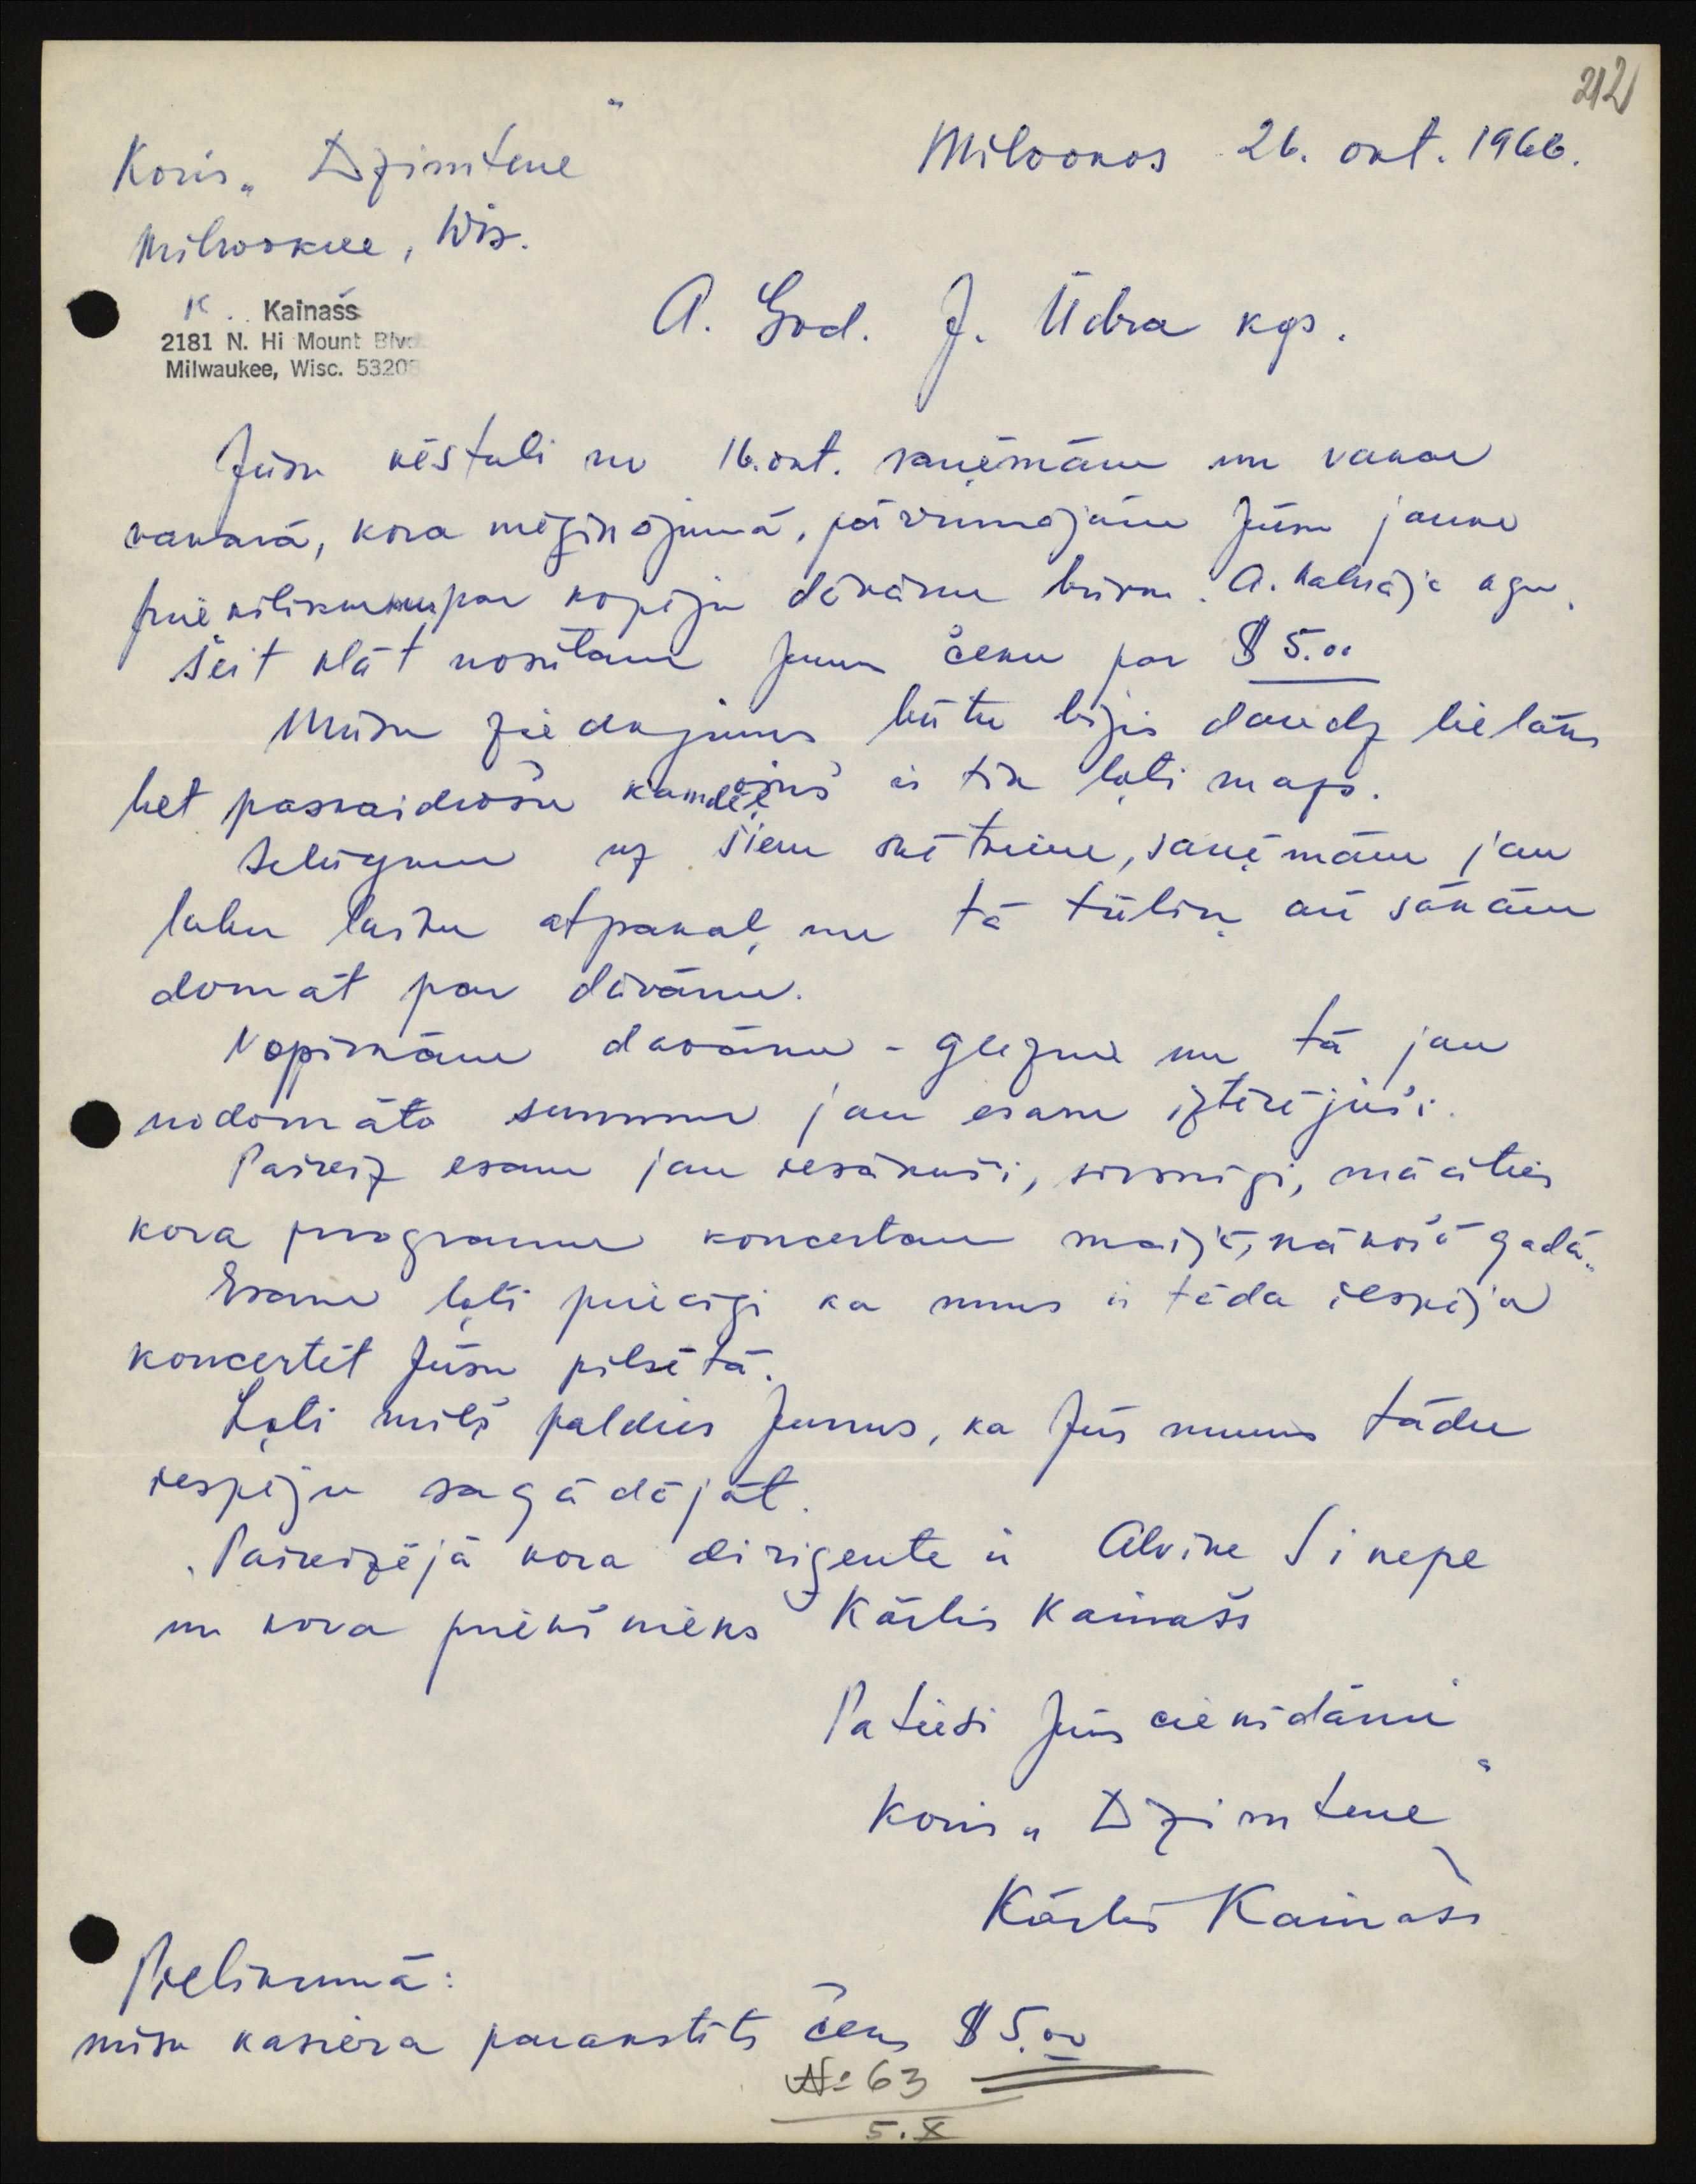 212
Koris „Dzimtene"
Milwaukee, Wis.
Milvokos 26. okt. 1966.
K. Kainašs
2181 N. Hi Mount Blvd
Milwaukee, Wisc. 53208
A. God. J. Ūdra kgs.
Jūsu vēstuli no 16. okt. saņēmām un vakar
vakarā, kora mēģinājumā, pārrunājām Jūsu jauno
priekšlikumu par kopēju dāvanu A. kgu.
Šeit klāt nosūtam Jums čeku par $5.00
Mūsu ziedojums būtu bijis daudz lielāks
bet paskaidrošu kamdēļ viņš ir tik ļoti mazs.
Selūgumu uz šiem svētkiem, saņēmām jau
labu laiku atpakaļ un tā tūliņ arī sākām
domāt par dāvanu.
Nopirkām davanu - gleznu un tā jau
nodomāto summu jau esam iztērējuši.
Pašreiz esam jau iesākuši, sirsnīgi, mācīties
kora programu koncertam maijā, nākošā gadā.
Esam ļoti priecīgi ka mums ir tāda iespēja
koncertēt Jūsu pilsētā.
Ļoti mīļš paldies Jums, ka Jūs mums tādu
iespēju sagādājāt.
Pašreizējā kora diriģente ir Alvine Sinepe
un kora priekšnieks Kārlis Kainašs
Patiesi Jūs cienīdami
Koris „Dzimtene"
Kārlis Kainašs
Pielikumā:
mūsu kasiera parakstīts čeks $5.00
№ 63
5.X